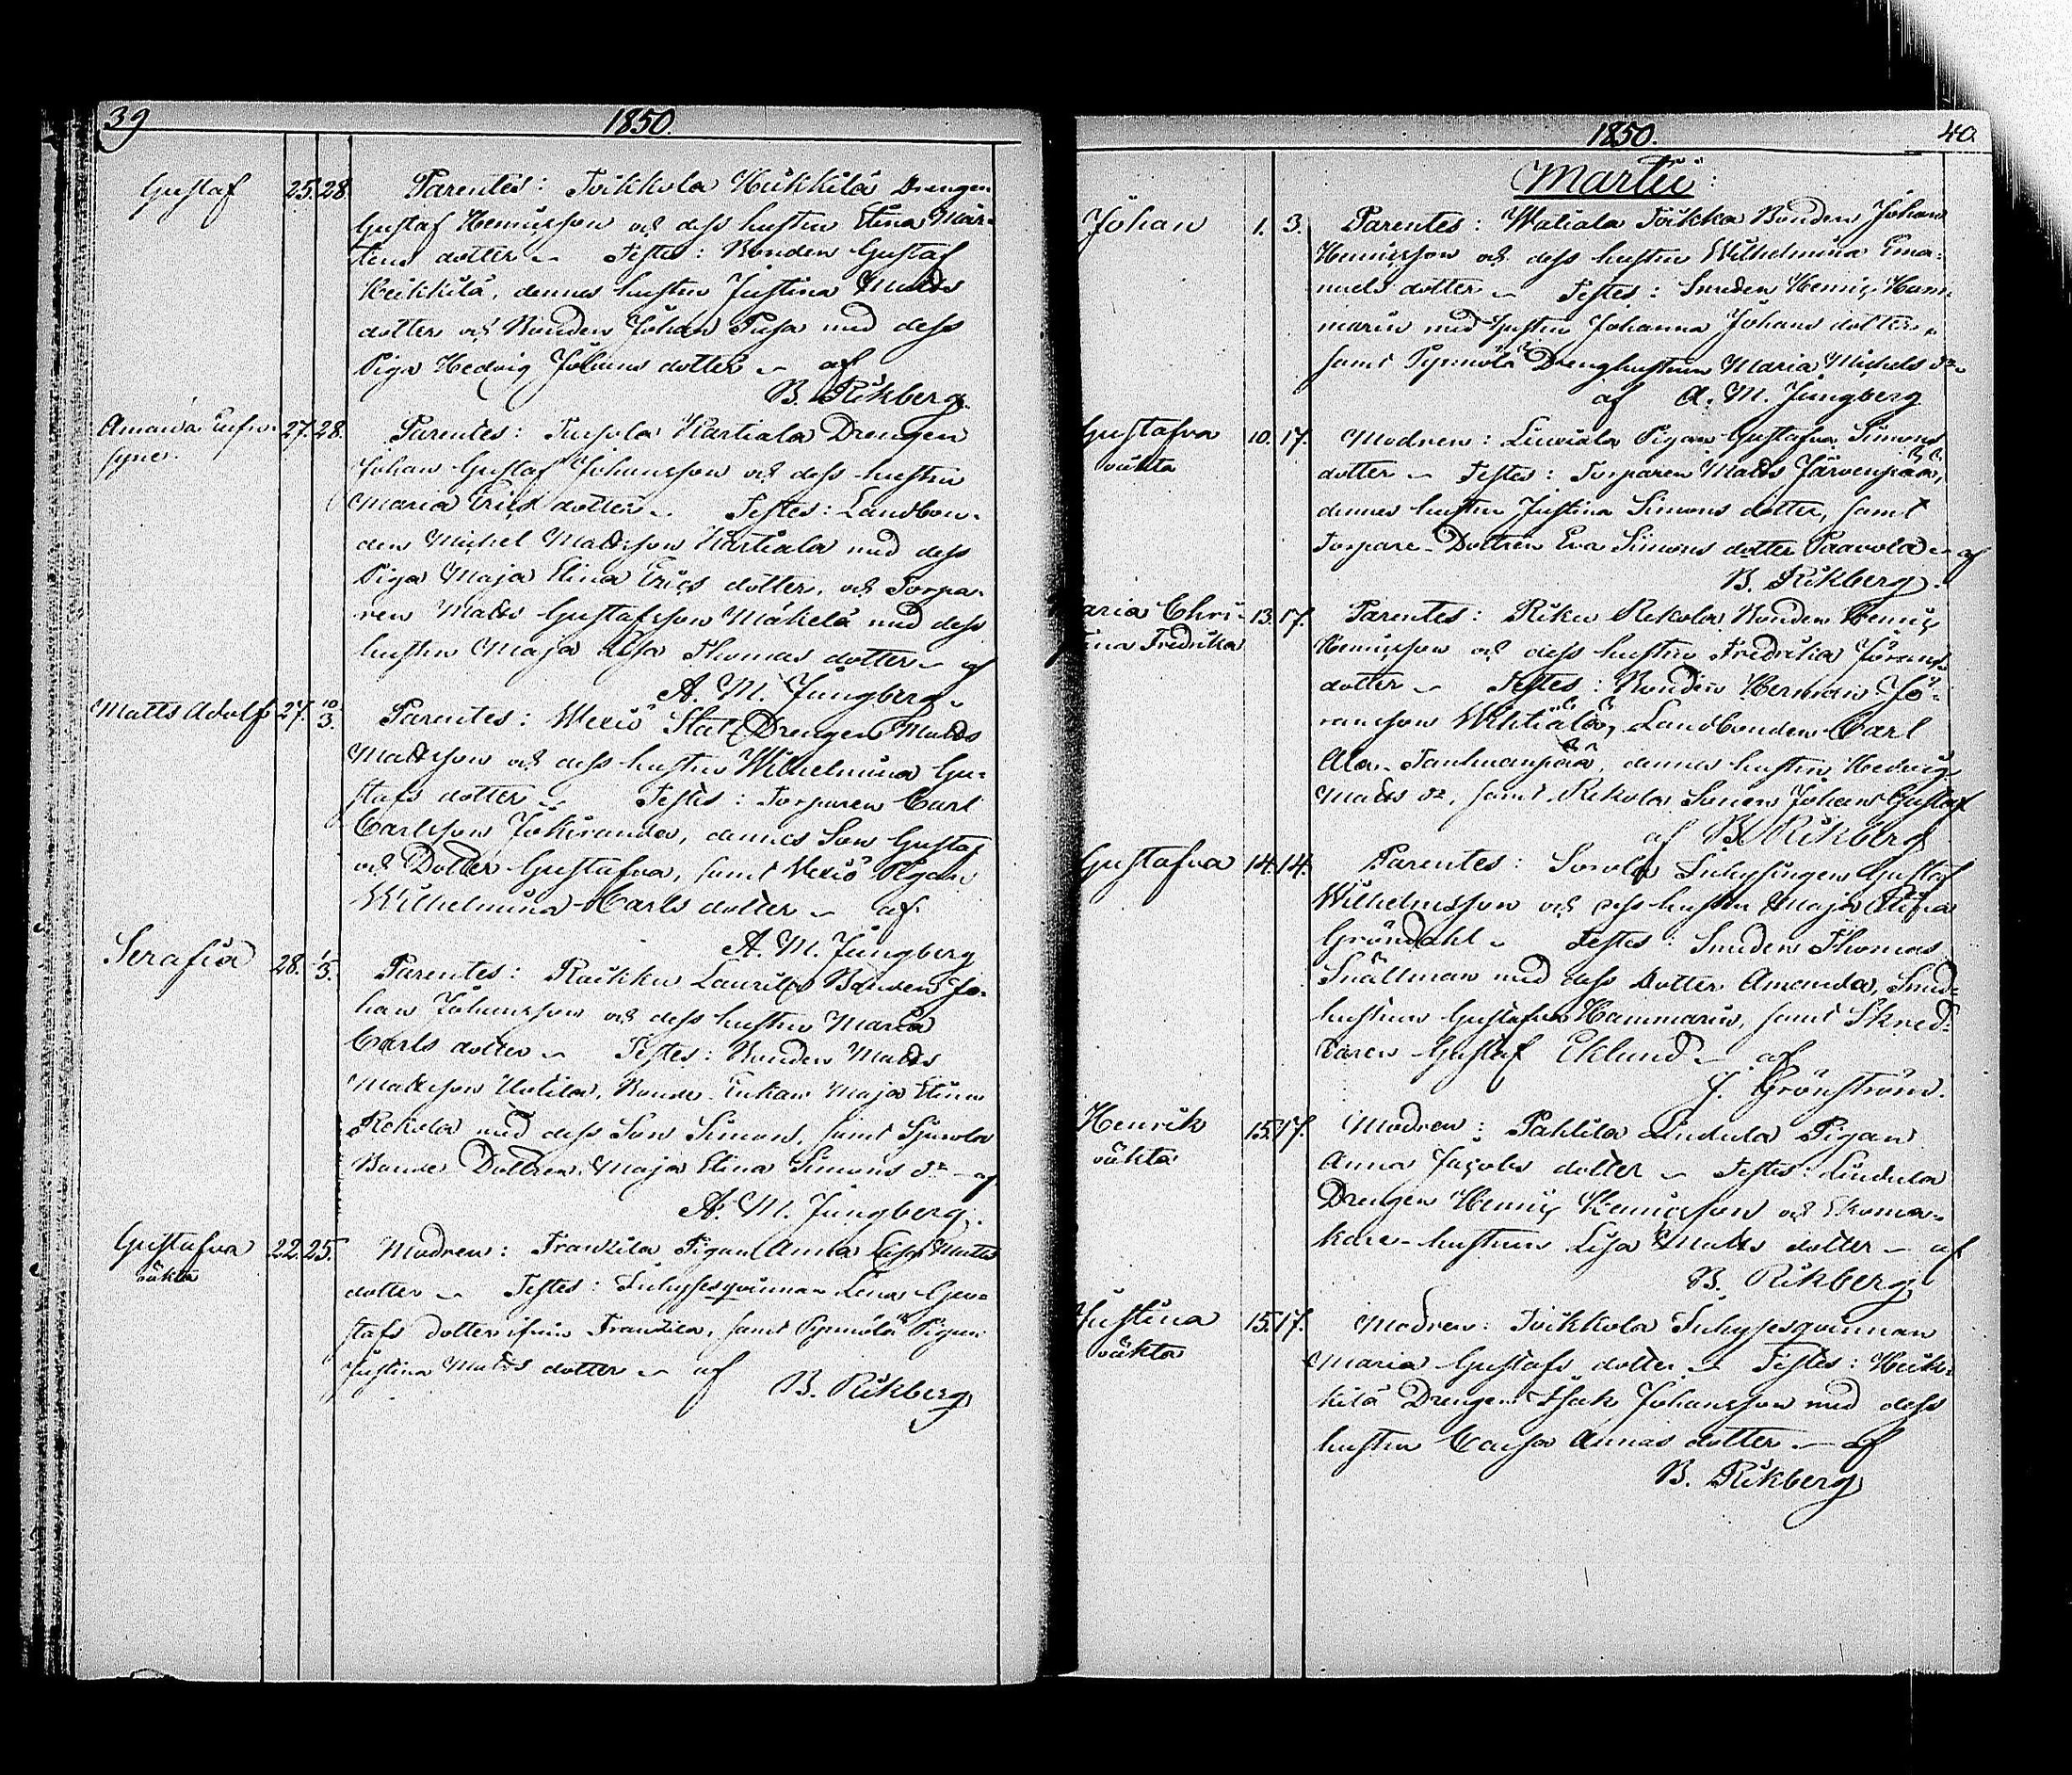 39
1850
Gustaf 25. 28. Parentes: Toikkola Heikkilä Drengen
Gustaf Henricsson och dess hustru Elina Mår-
tens dotter – Testes: Bonden Gustaf
Heikkilä, dennes hustru Justina Matts
dotter och Bonden Johan Pusa med dess
Piga Hedvig Johans dotter – af
B. Rikberg.
Amanda Eufro- 27. 28. Parentes: Hartiala Drengen
syne. Johan Gustaf Johansson och dess hustru
Maria Erics dotter – Testes: Landbon-
den Michel Mattsson Hartiala med dess
Piga Maja Elina Erics dotter, och Torpa-
ren Matts Gustafsson Mäkelä med dess
hustru Maja Lisa Thomas dotter – af
A. M. Jungberg.
Matts Adolf 27. 10/3. Parentes: Wexiö Stat Drengen Matts
Mattsson och dess hustru Wilhelmina Gu-
stafs dotter – Testes: Torparen Carl
Carlsson Jokiranda, dennes Son Gustaf
och Dotter Gustafva, samt Wexiö Pigan
Wilhelmina Carls dotter – af
A. M. Jungberg
Serafia 28. 1/3. Parentes: Raikku Laurila Bonden Jo-
han Johansson och dess hustru Maria
Carls dotter – Testes: Bonden Matts
Mattsson Uotila, Bonde-Enkan Maja Elina
Rekola med dess Son Simon, samt
Bonde Dottren Maja Elina Simons dr – af
A. M. Jungberg.
Gustafva 22. 25. Modren: Frantzila Pigan Anna Lisa Matts
oäkta dotter – Testes: Inhysesqvinnan Lena Gu-
stafs dotter ifrån Frantzila, samt Pynnölä Pigan
Justina Matts dotter – af
B. Rikberg
1850.
40.
Martii:
Johan 1. 3. Parentes: Waliala Toikka Bonden Johan
Henricsson och dess hustru Wilhelmina Ema-
nuels dotter – Testes: Smeden Henric Ham-
marin med hustru Johanna Johans dotter,
samt Pynnölä Drenghustrun Maria Michels dr
af A. M. Jungberg
Gustafva 10. 17. Modren: Liuviala Pigan Gustafva Simons
oäkta dotter – Testes: Torparen Matts Järvenpää,
dennes hustru Justina Simons dotter, samt
Torpare-Dottren Eva Simons dotter Paavola – af
B. Rikberg.
aria Chri- 13. 17. Parentes: Riku Rekola Bonden Henric
ina Fredrika Henricsson och dess hustru Fredrika Jörans
dotter – Testes: Bonden Herman Jö-
ransson Wihtiälä, Landbonden Carl
Ala-Tanhuanpää, dennes hustru Hedvig
Matts dr, samt Rekola Sonen Johan Gustaf
af B. Rikberg
Gustafva 14. 14. Parentes: Sorola Inhysingen Gustaf
Wilhelmsson och dess hustru Maja Stina
Gröndahl – Testes: Smeden Thomas
Snällman med dess Dotter Amanda, Smed-
hustrun Gustafva Hammarin, samt Skred-
daren Gustaf Eklund – af
J. Grönström.
Henrik 15. 17. Modren: Pahlila Lindula Pigan
oäkta Anna Jacobs dotter – Testes: Lindula
Drengen Henric Henricsson och Skoma-
kare-hustrun Lisa Matts dotter – af
B. Rikberg
Justina 15. 17. Modren: Toikkola Inhysesqvinnan
oäkta Maria Gustafs dotter – Testes: Heik-
kilä Drengen Isak Johansson med dess
hustru Caisa Annas dotter – af
B. Rikberg